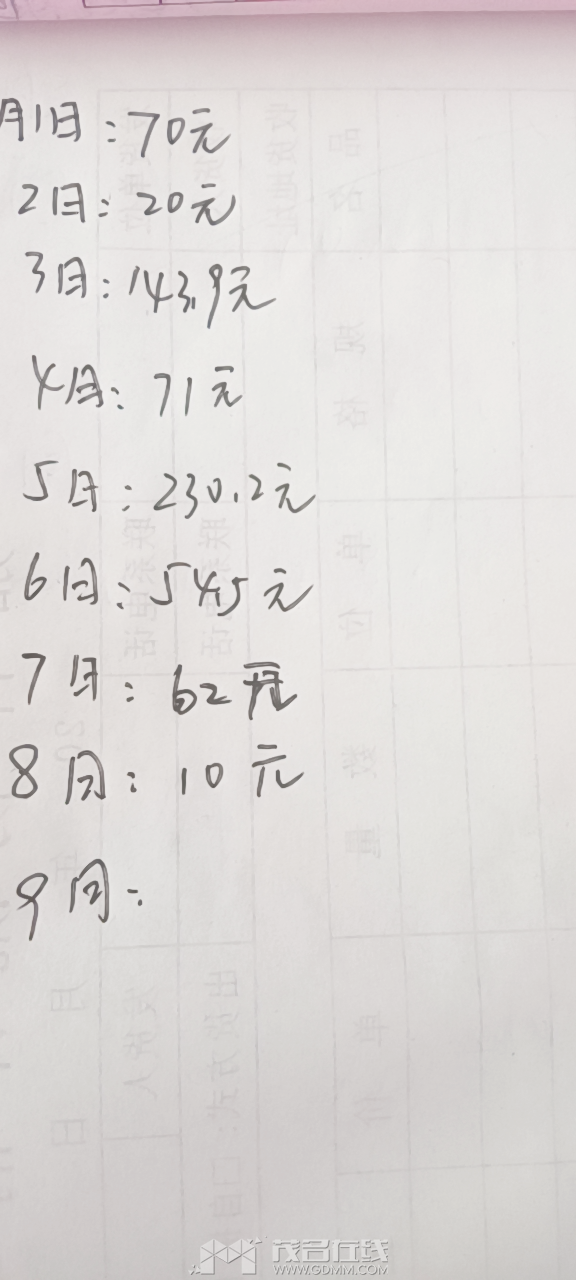 月1日:70元
2日:20元
3日:143.9元
4日:71元
5日:230.2元
6日:545元
7日:62元
8日:10元
9日:
茂名在线
WWW.GDMM.COM